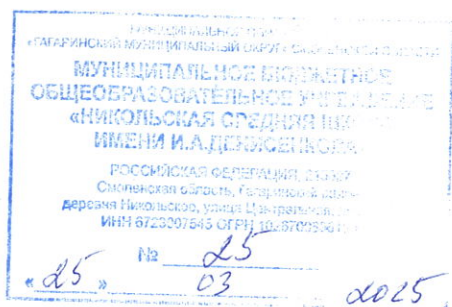 МУНИЦИПАЛЬНОЕ
«ГАГАРИНСКИЙ МУНИЦИПАЛЬНЫЙ ОКРУГ» СМОЛЕНСКОЙ ОБЛАСТИ
МУНИЦИПАЛЬНОЕ БЮДЖЕТНОЕ
ОБЩЕОБРАЗОВАТЕЛЬНОЕ УЧРЕЖДЕНИЕ
«НИКОЛЬСКАЯ СРЕДНЯЯ
ИМЕНИ И.А.ДЕНИСЕНКОВА
РОССИЙСКАЯ ФЕДЕРАЦИЯ,
Смоленская область, Гагаринский
деревня Никольское, улица Центральная,
ИНН ОГРН
№ 25
« 25 » 03 2025